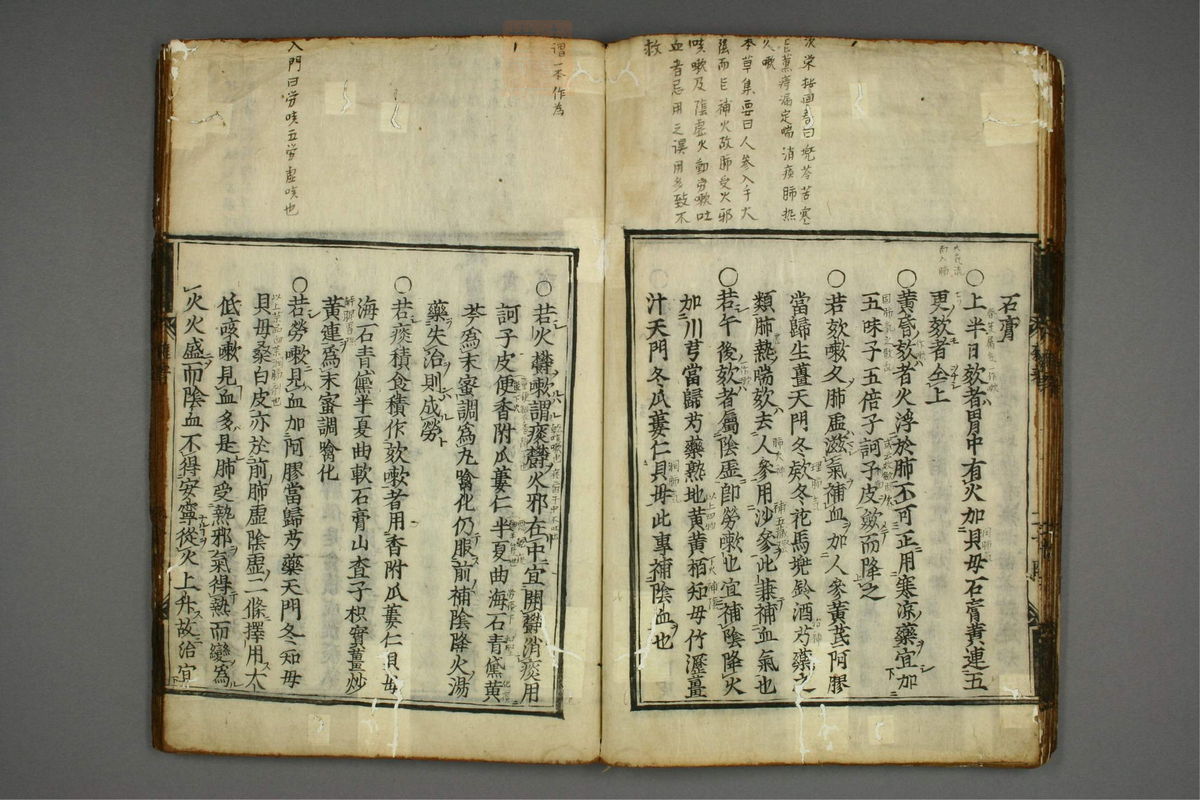 次栄按回春曰兜苓苦寒
能薫痔漏定喘消痰肺熱
久嗽
本草集要曰人參入手太
陰而能補火故肺受火邪
咳嗽及陰虚火動勞嗽吐
血者忌用之誤用多致不
救
石膏
○上半日欬者胃中有火加貝母石膏黄連五
更欬者仝上
○黄昏欬者火浮於肺不可正用寒凉藥宜加
五味子五倍子訶子皮斂而降之
○若欬嗽久肺虚滋氣補血加人參黄芪阿膠
當歸生薑天門冬欵冬花馬兜鈴酒芍藥之
類肺熱喘欬去人參用沙參此兼補血氣也
○若午後欬者屬陰虚卽勞嗽也宜補陰降火
加川芎當歸芍藥熟地黄黄栢知母竹瀝薑
汁天門冬瓜蔞仁貝母此專補陰血也
謂一本作為
入門曰労咳五労虚咳也
○若火欝嗽謂痰欝火邪在中宜開欝消痰用
訶子皮便香附瓜蔞仁半夏曲海石青黛黄
芩爲末蜜調爲丸噙化仍服前補陰降火湯
藥失治則成勞
○若痰積食積作欬嗽者用香附瓜蔞仁貝母
海石青黛半夏曲軟石膏山査子枳實薑炒
黄連爲末蜜調噙化
○若勞嗽見血加阿膠當歸芍藥天門冬知母
貝母桑白皮亦於前肺虚陰虚二條擇用大
低咳嗽見血多是肺受熱邪氣得熱而變爲
火火盛而陰血不得安寧從火上升故治宜